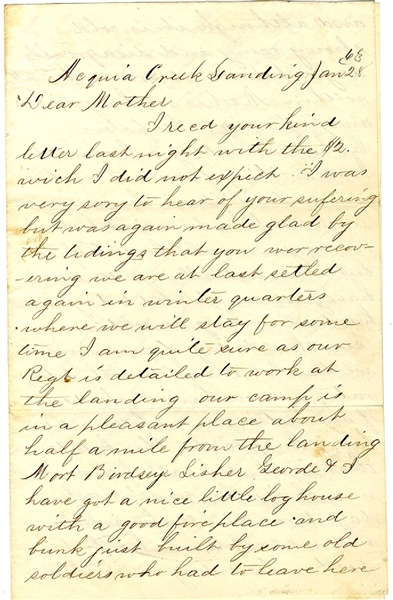 63
Acquia Creek Landing Jan 28
Dear Mother
I recd your kind
letter last night with the $2.
wich I did not expect. I was
very sory to hear of your sufering
but was again made glad by
the tidings that you wer recov-
-ering we are at last setled
again in winter quarters
where we will stay for some
time I am quite sure as our
Regt is detailed to work at
the landing our camp is
in a pleasant place about
half a mile from the landing
Mort Birdsey Lisher George & I
have got a nice little log house
with a good fire place and
bunk just built by some old
soldiers who had to leave here